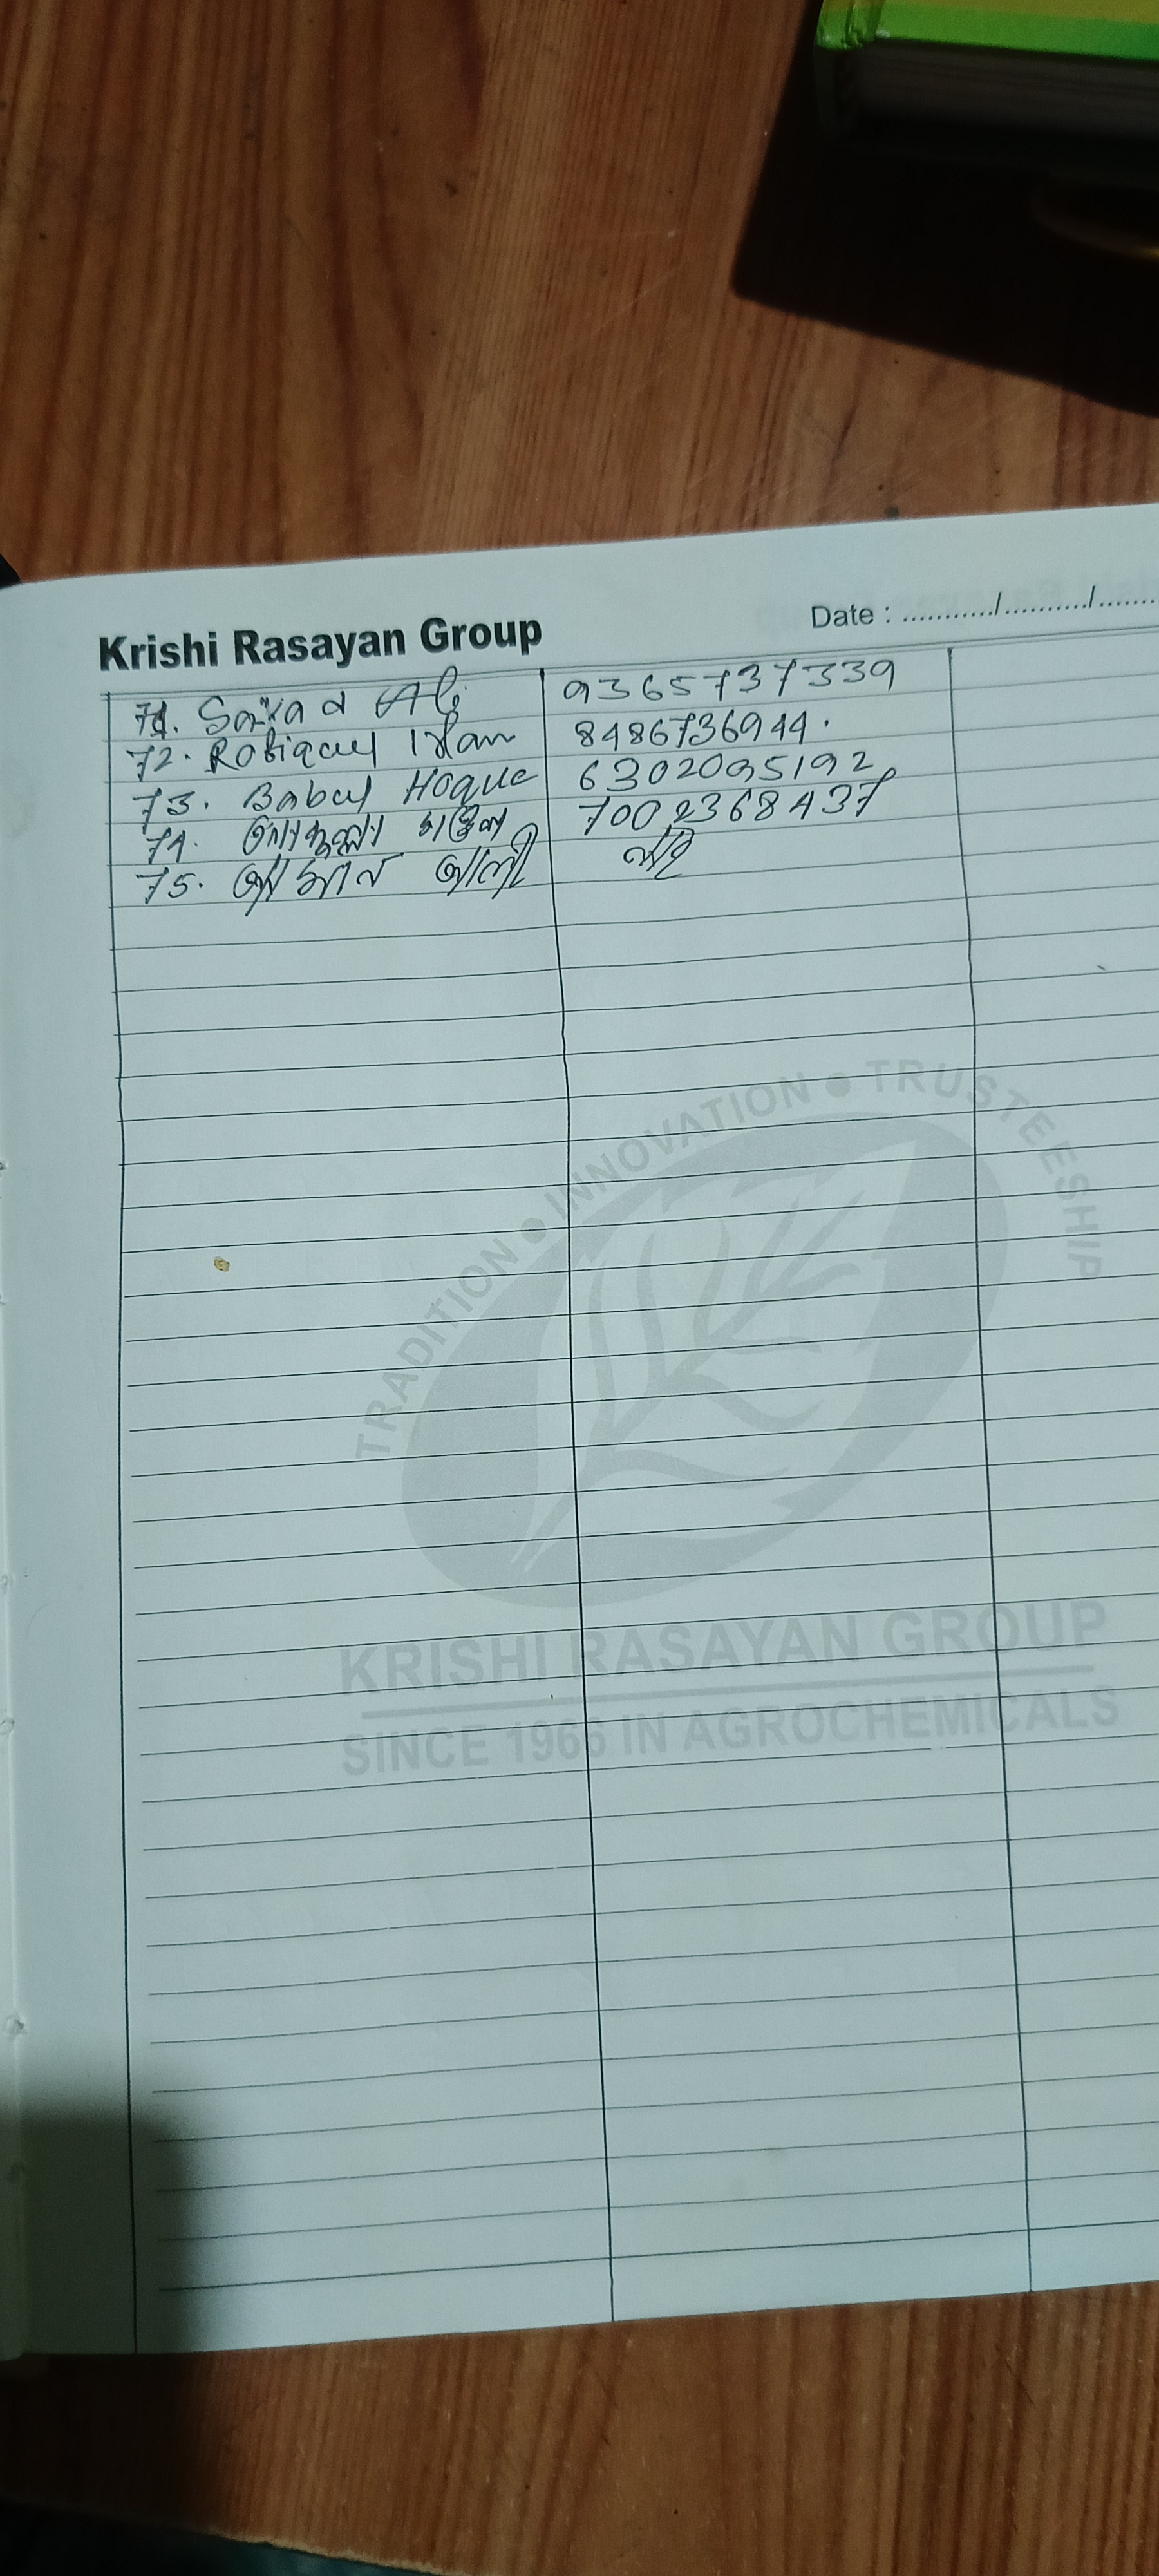 Krishi Rasayan Group
Date : .........../.........../.......
71. Sayad Ali 9365737339
72. Rofiqul Islam 8486736944.
73. Babul Hoque 6302095192
74. 7002368437
75. আলী নাই
TRADITION ● INNOVATION ● TRUSTEESHIP
KRISHI RASAYAN GROUP
SINCE 1966 IN AGROCHEMICALS